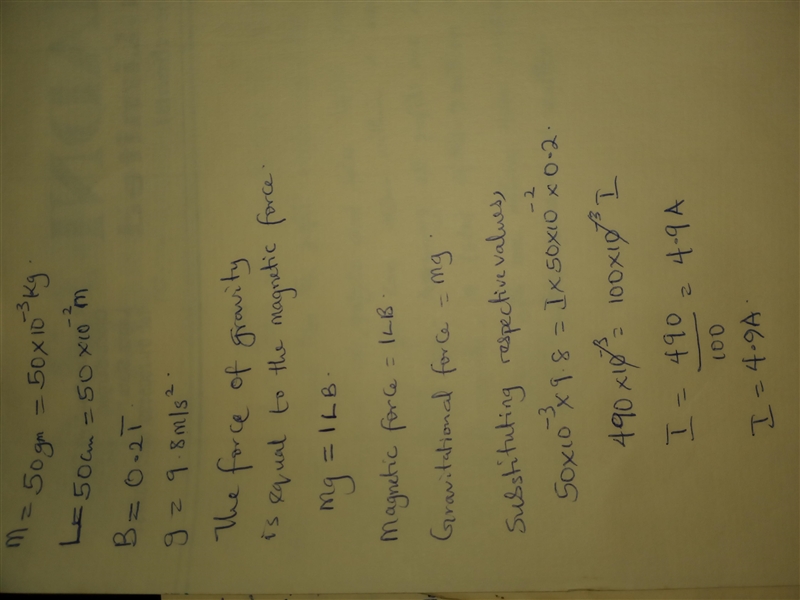 M = 50gm = 50×10⁻³ Kg.
L = 50cm = 50×10⁻² m
B = 0.2T
g = 9.8m/s².
The force of gravity
is equal to the magnetic force.
Mg = ILB.
Magnetic force = ILB.
Gravitational force = Mg.
Substituting respective values,
50×10⁻³ × 9.8 = I × 50×10⁻² × 0.2.
490×10⁻³ = 100×10⁻³ I
I = 490/100 = 4.9A
I = 4.9A.